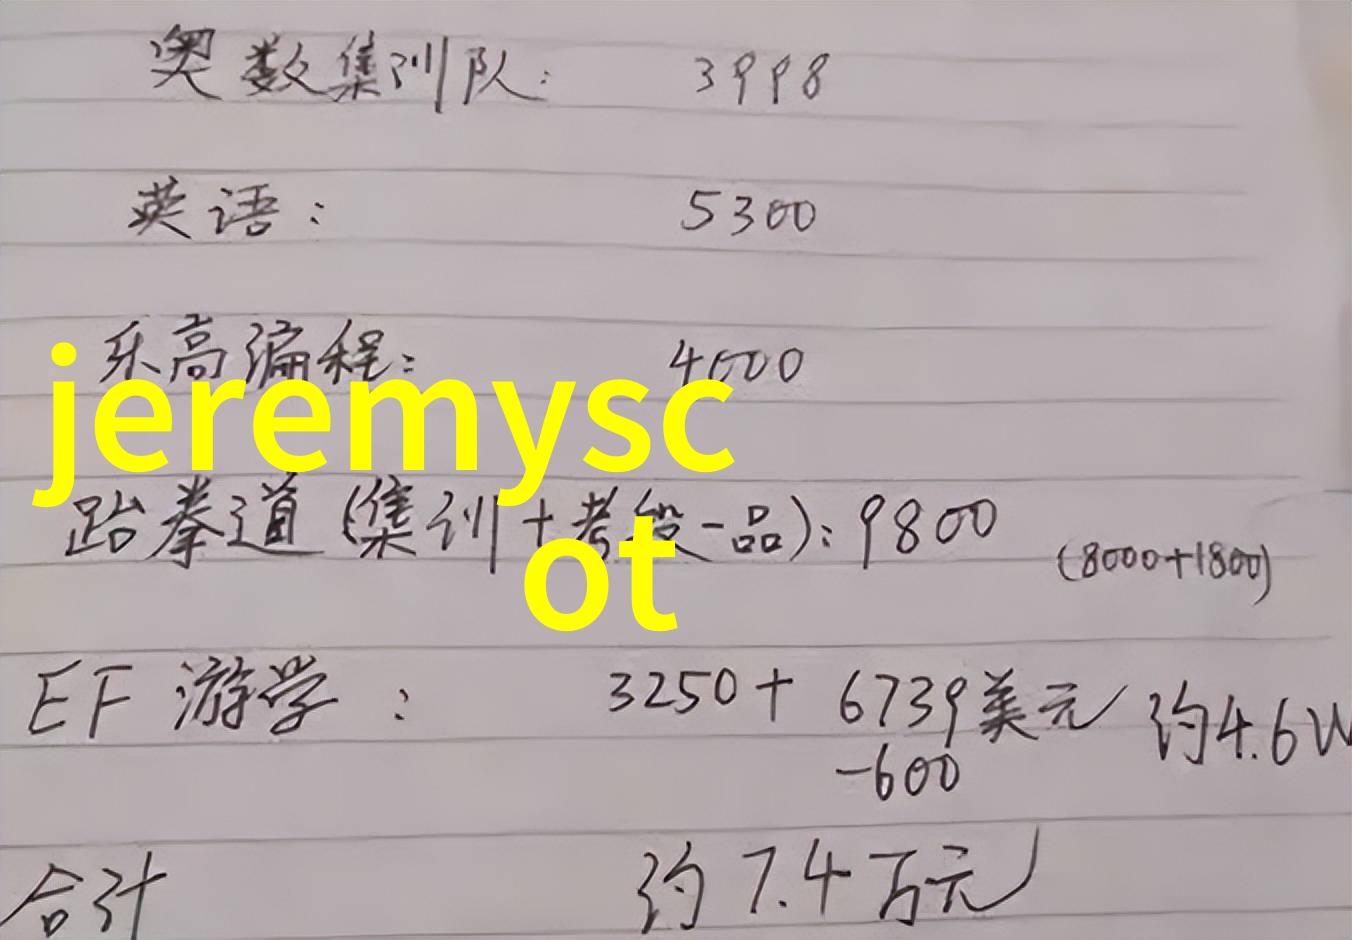 奥数集训队: 3998
英语: 5300
乐高编程: 4000
jeremysc
跆拳道(集训+考级一品): 9800
(8000+1800)
ot
EF 游学: 3250+ 6739美元 约4.6W
-600
合计 约7.4万元